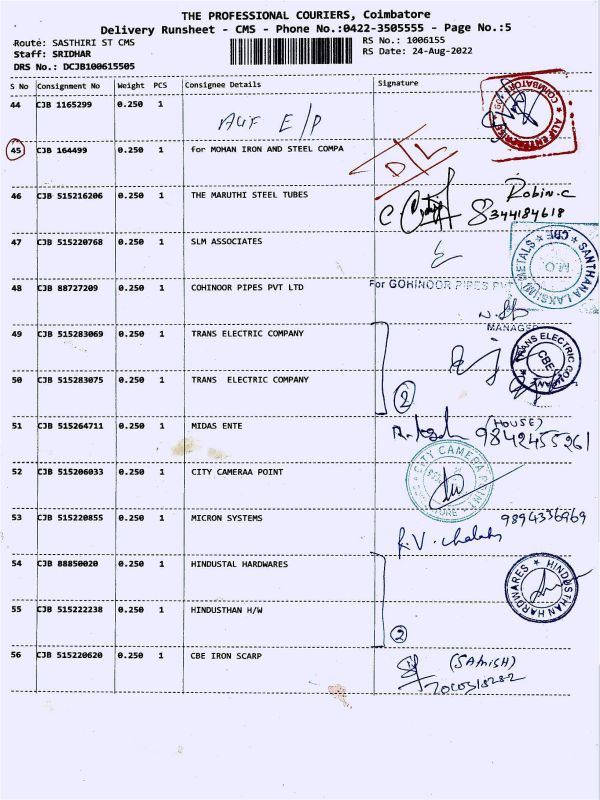 THE PROFESSIONAL COURIERS, Coimbatore
Delivery Runsheet - CMS - Phone No.:0422-3505555 - Page No.:5
Route: SASTHIRI ST CMS
Staff: SRIDHAR
DRS No.: DCJB100615505
RS No.: 1006155
RS Date: 24-Aug-2022
S No Consignment No Weight PCS Consignee Details Signature
44 CJB 1165299 0.250 1
AUF E/P
COIMBATORE
45 CJB 164499 0.250 1 for MOHAN IRON AND STEEL COMPA
D/L
46 CJB 515216206 0.250 1 THE MARUTHI STEEL TUBES
Robin.C
8344184618
47 CJB 515220768 0.250 1 SLM ASSOCIATES
SANTHANA LAKSHMI METALS CBE
M.O.
48 CJB 88727209 0.250 1 COHINOOR PIPES PVT LTD
For GOHINOOR PIPES PVT
MANAGER
49 CJB 515283069 0.250 1 TRANS ELECTRIC COMPANY
TRANS ELECTRIC COMPANY
CBE
50 CJB 515283075 0.250 1 TRANS ELECTRIC COMPANY
2
51 CJB 515264711 0.250 1 MIDAS ENTE
(HOUSE)
9842455261
52 CJB 515206033 0.250 1 CITY CAMERAA POINT
CITY CAMERA POINT
53 CJB 515220855 0.250 1 MICRON SYSTEMS
9894336969
54 CJB 88850020 0.250 1 HINDUSTAL HARDWARES
HINDUSTHAN HARDWARES
55 CJB 515222238 0.250 1 HINDUSTHAN H/W
2
56 CJB 515220620 0.250 1 CBE IRON SCARP
(SAMISH)